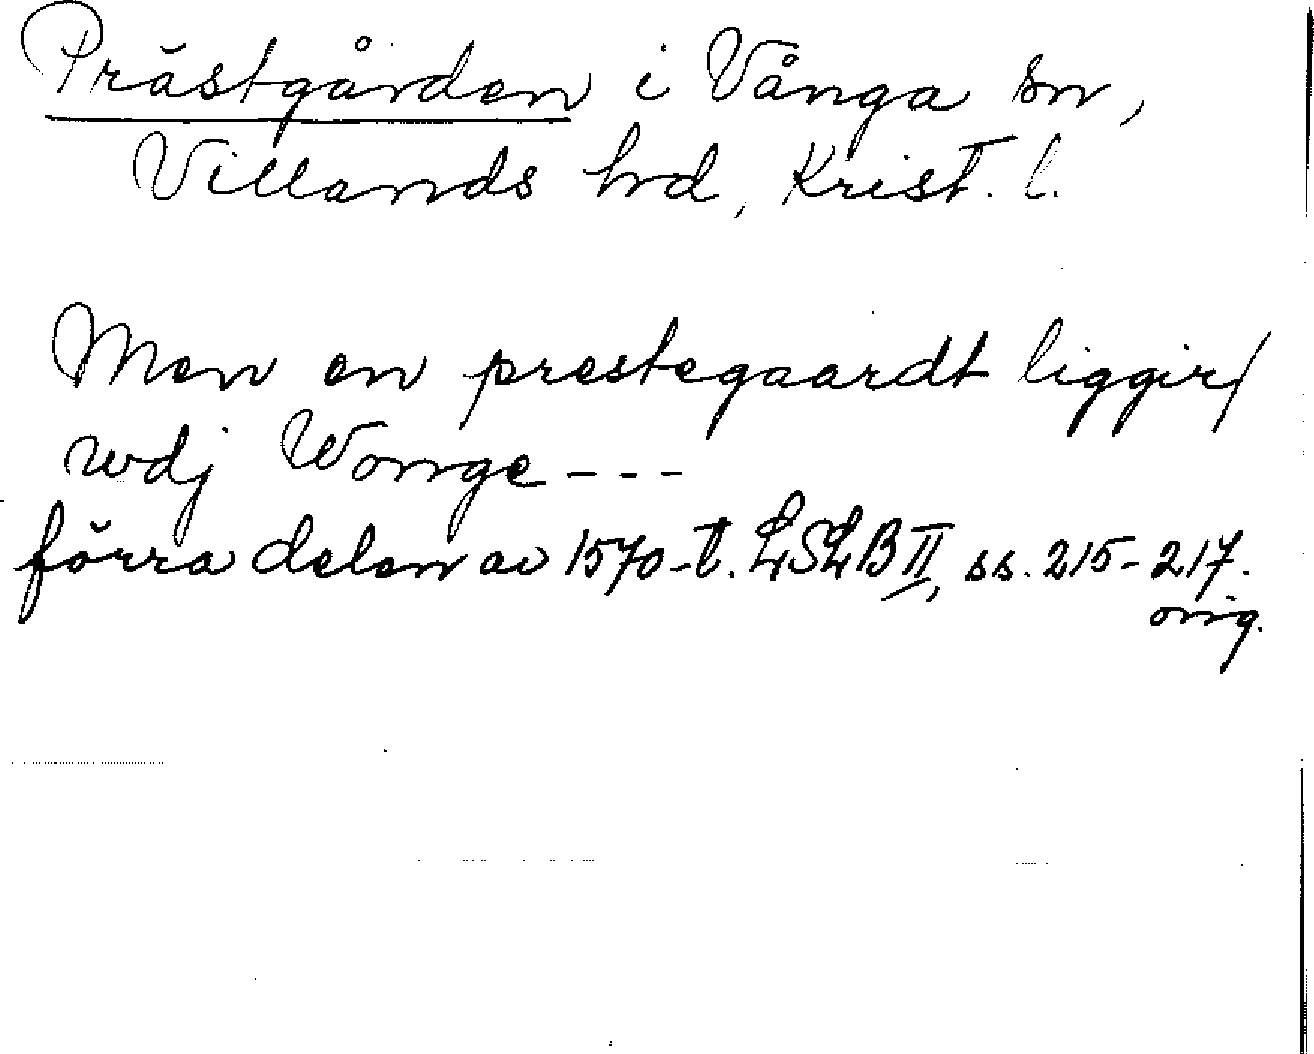 Prästgården i Vånga sn,
Villands hrd, Krist. l.
Men en prestegaardt liggir/
wdj Wonge ---
förra delen av 1570-t. LSLB II, ss. 215-217.
orig.